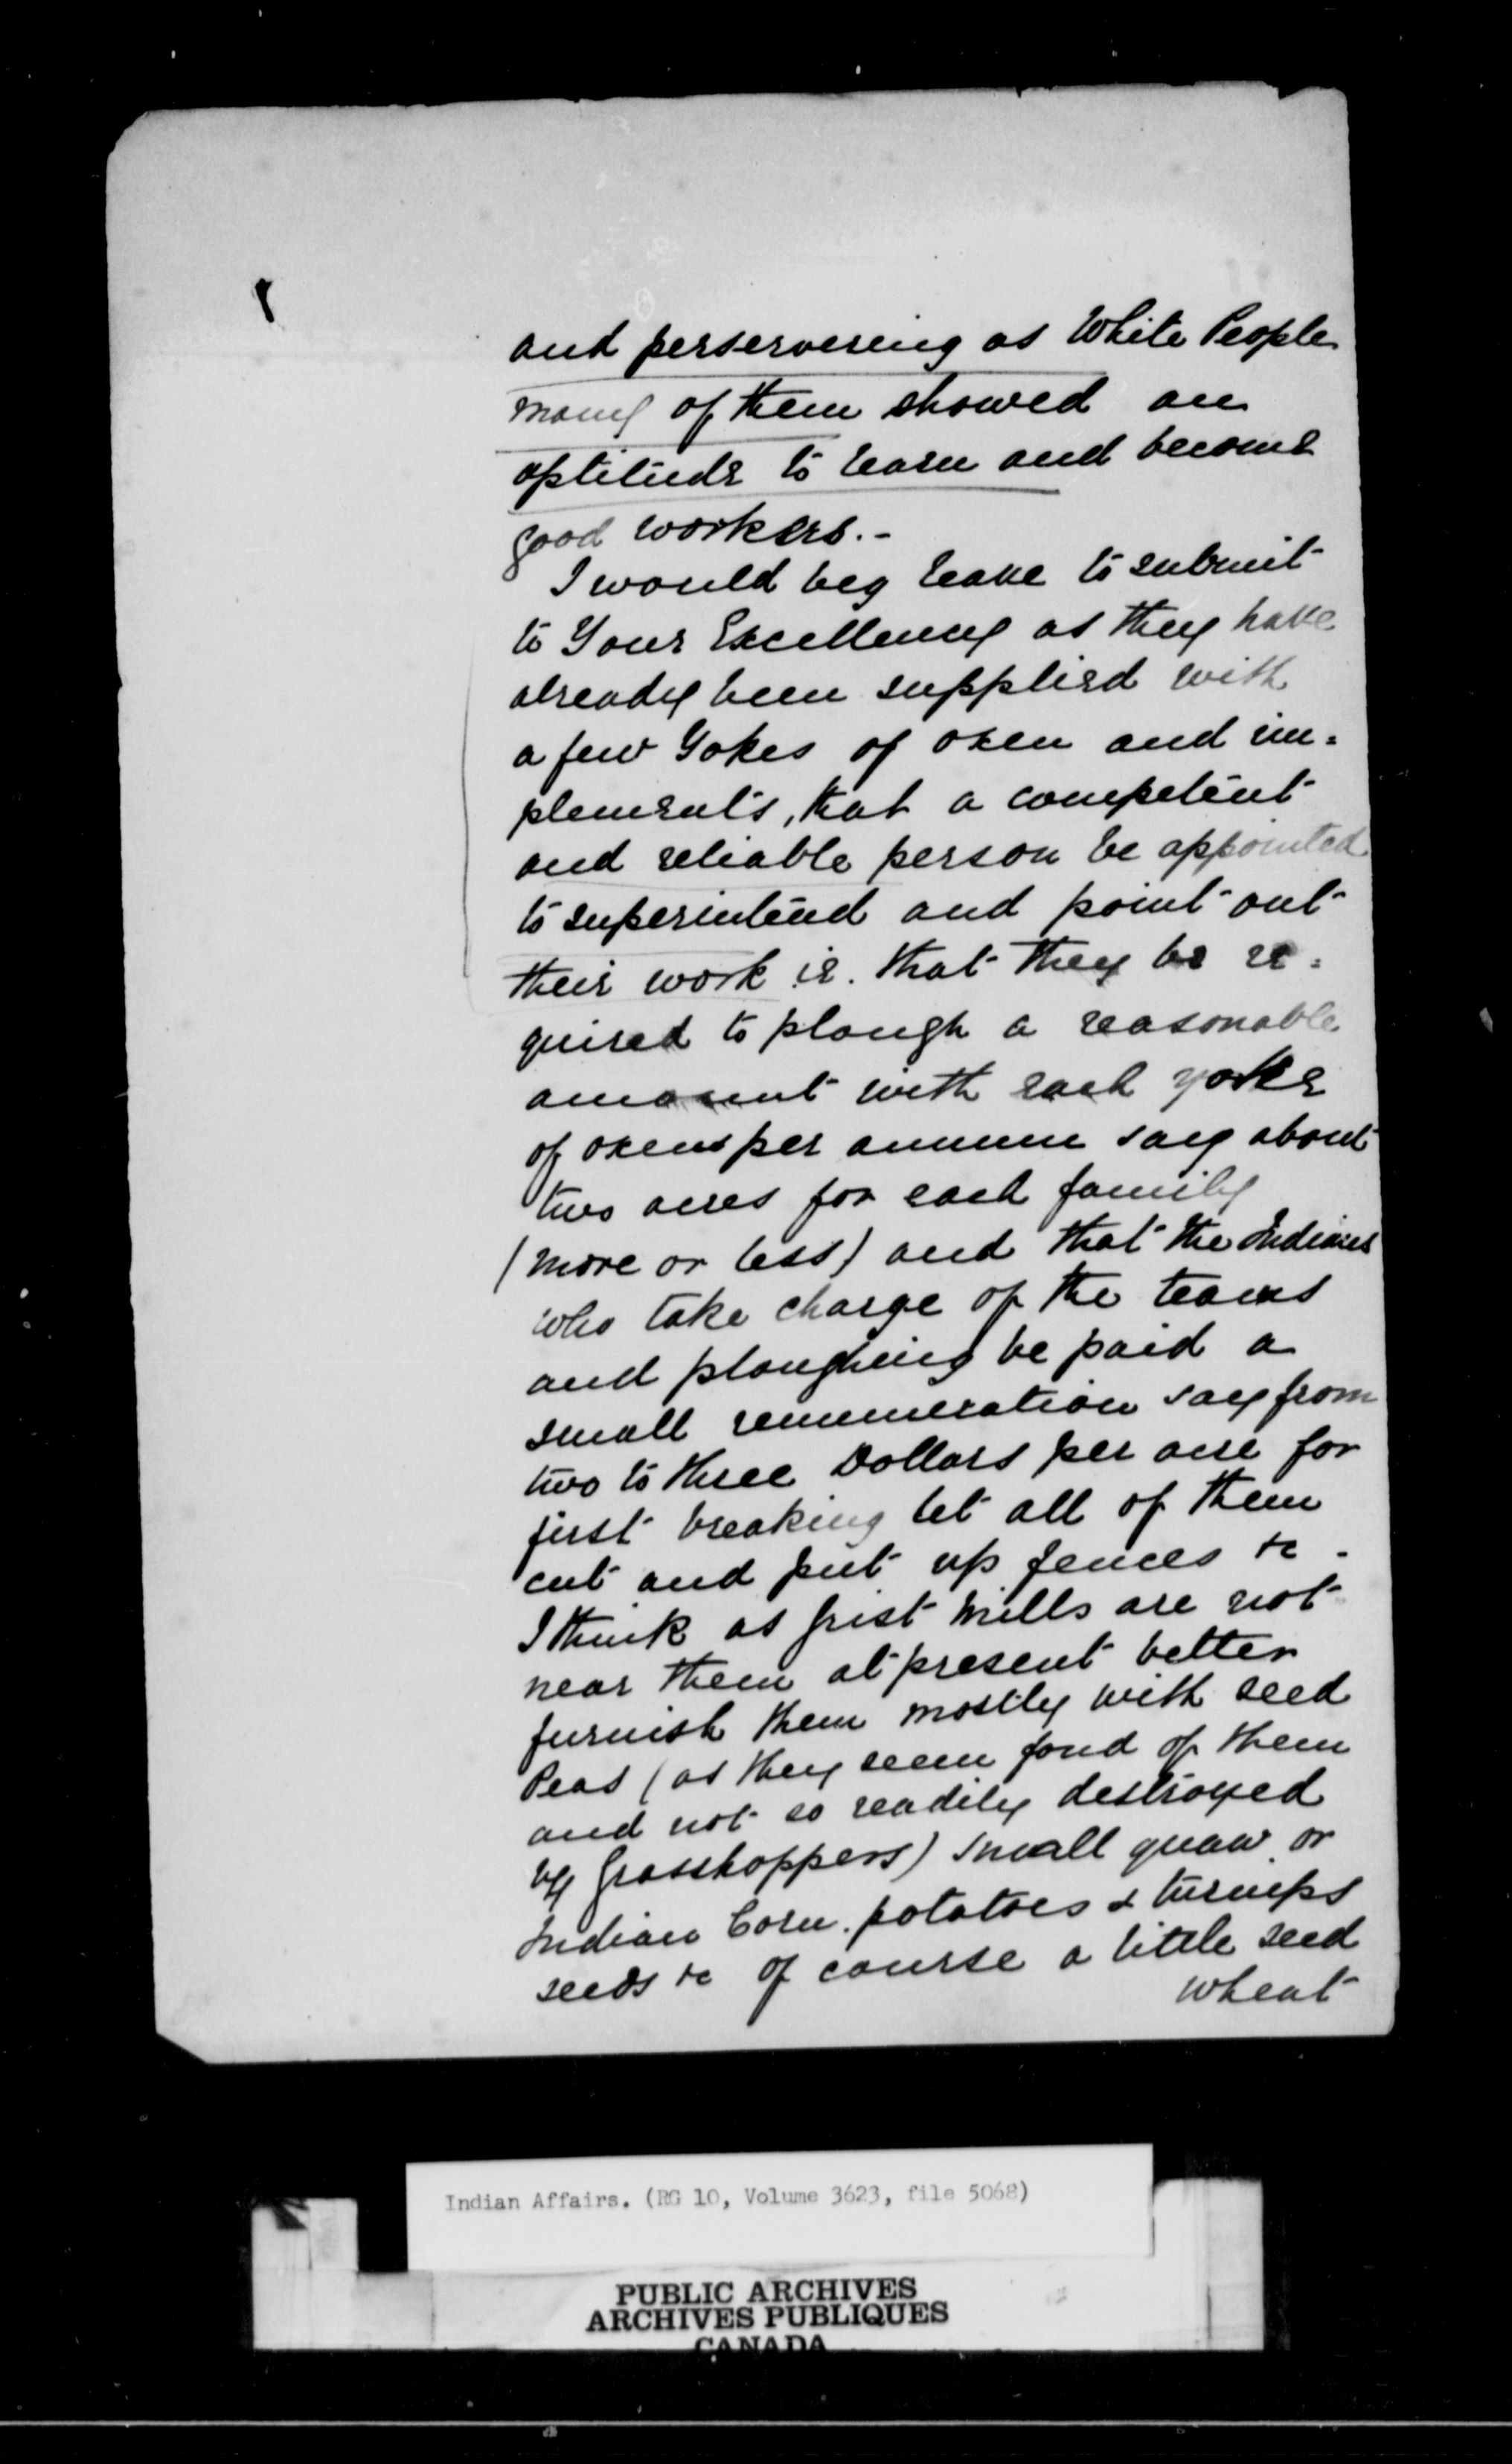 and perservering as White People
many of them showed an
aptitude to learn and become
good workers.-
I would beg leave to submit
to Your Excellency as they have
already been supplied with
a few Yokes of oxen and im=
plements, that a competent
and reliable person be appointed
to superintend and point out
their work ie. that they be re=
quired to plough a reasonable
amount with each yoke
of oxen per annum say about
two acres for each family
(more or less) and that the Indians
who take charge of the teams
and ploughing be paid a
small remuneration say from
two to three Dollars per acre for
first breaking let all of them
cut and put up fences &c -
I think as grist mills are not
near them at present better
furnish them mostly with seed
Peas (as they seem fond of them
and not so readily destroyed
by Grasshoppers) small or
Indian Corn. potatoes & turnips
seeds &c of course a little seed
wheat
Indian Affairs. (RG 10, Volume 3623, file 5068)
PUBLIC ARCHIVES
ARCHIVES PUBLIQUES
CANADA